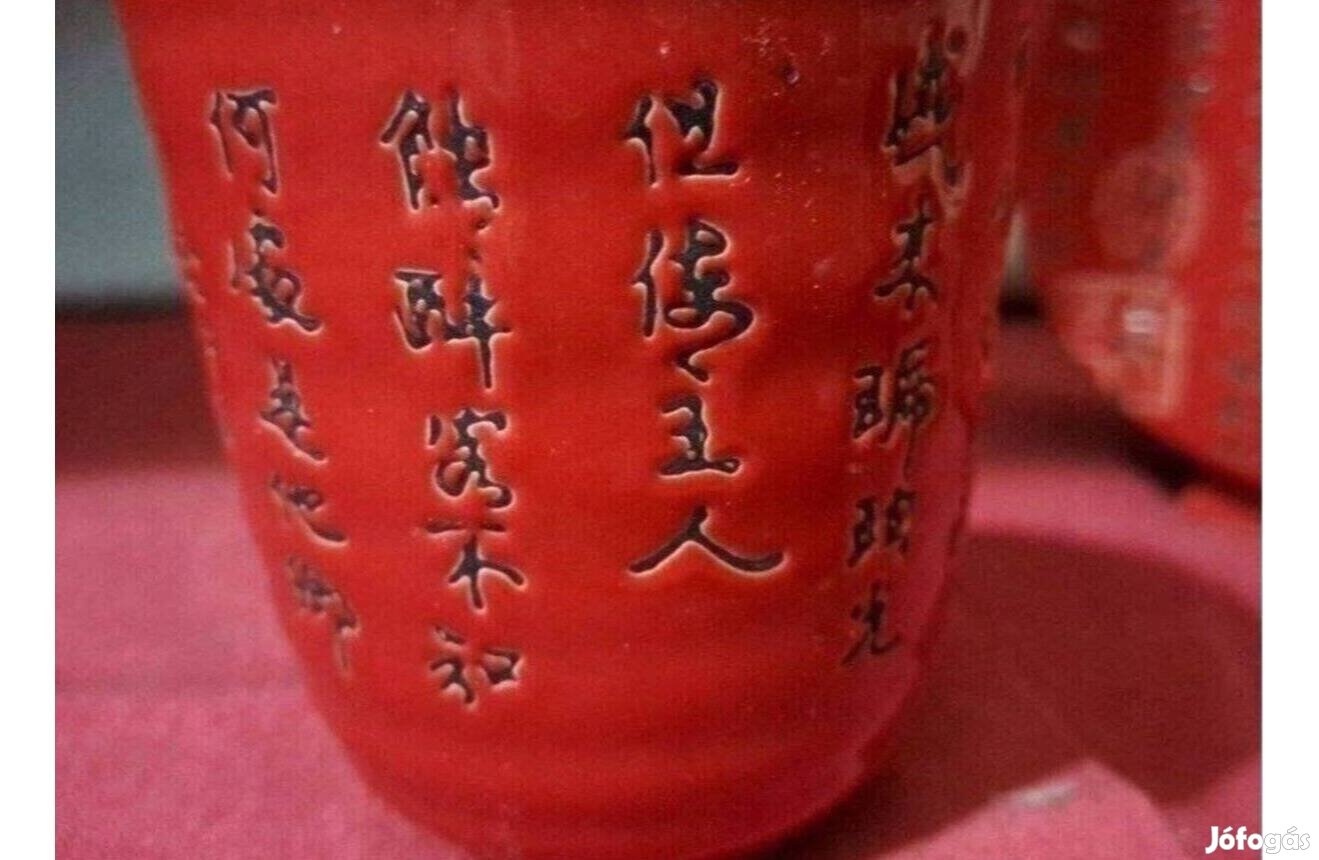 盛来琥珀光
但使主人
能醉客不知
何處是他鄉
Jófogás